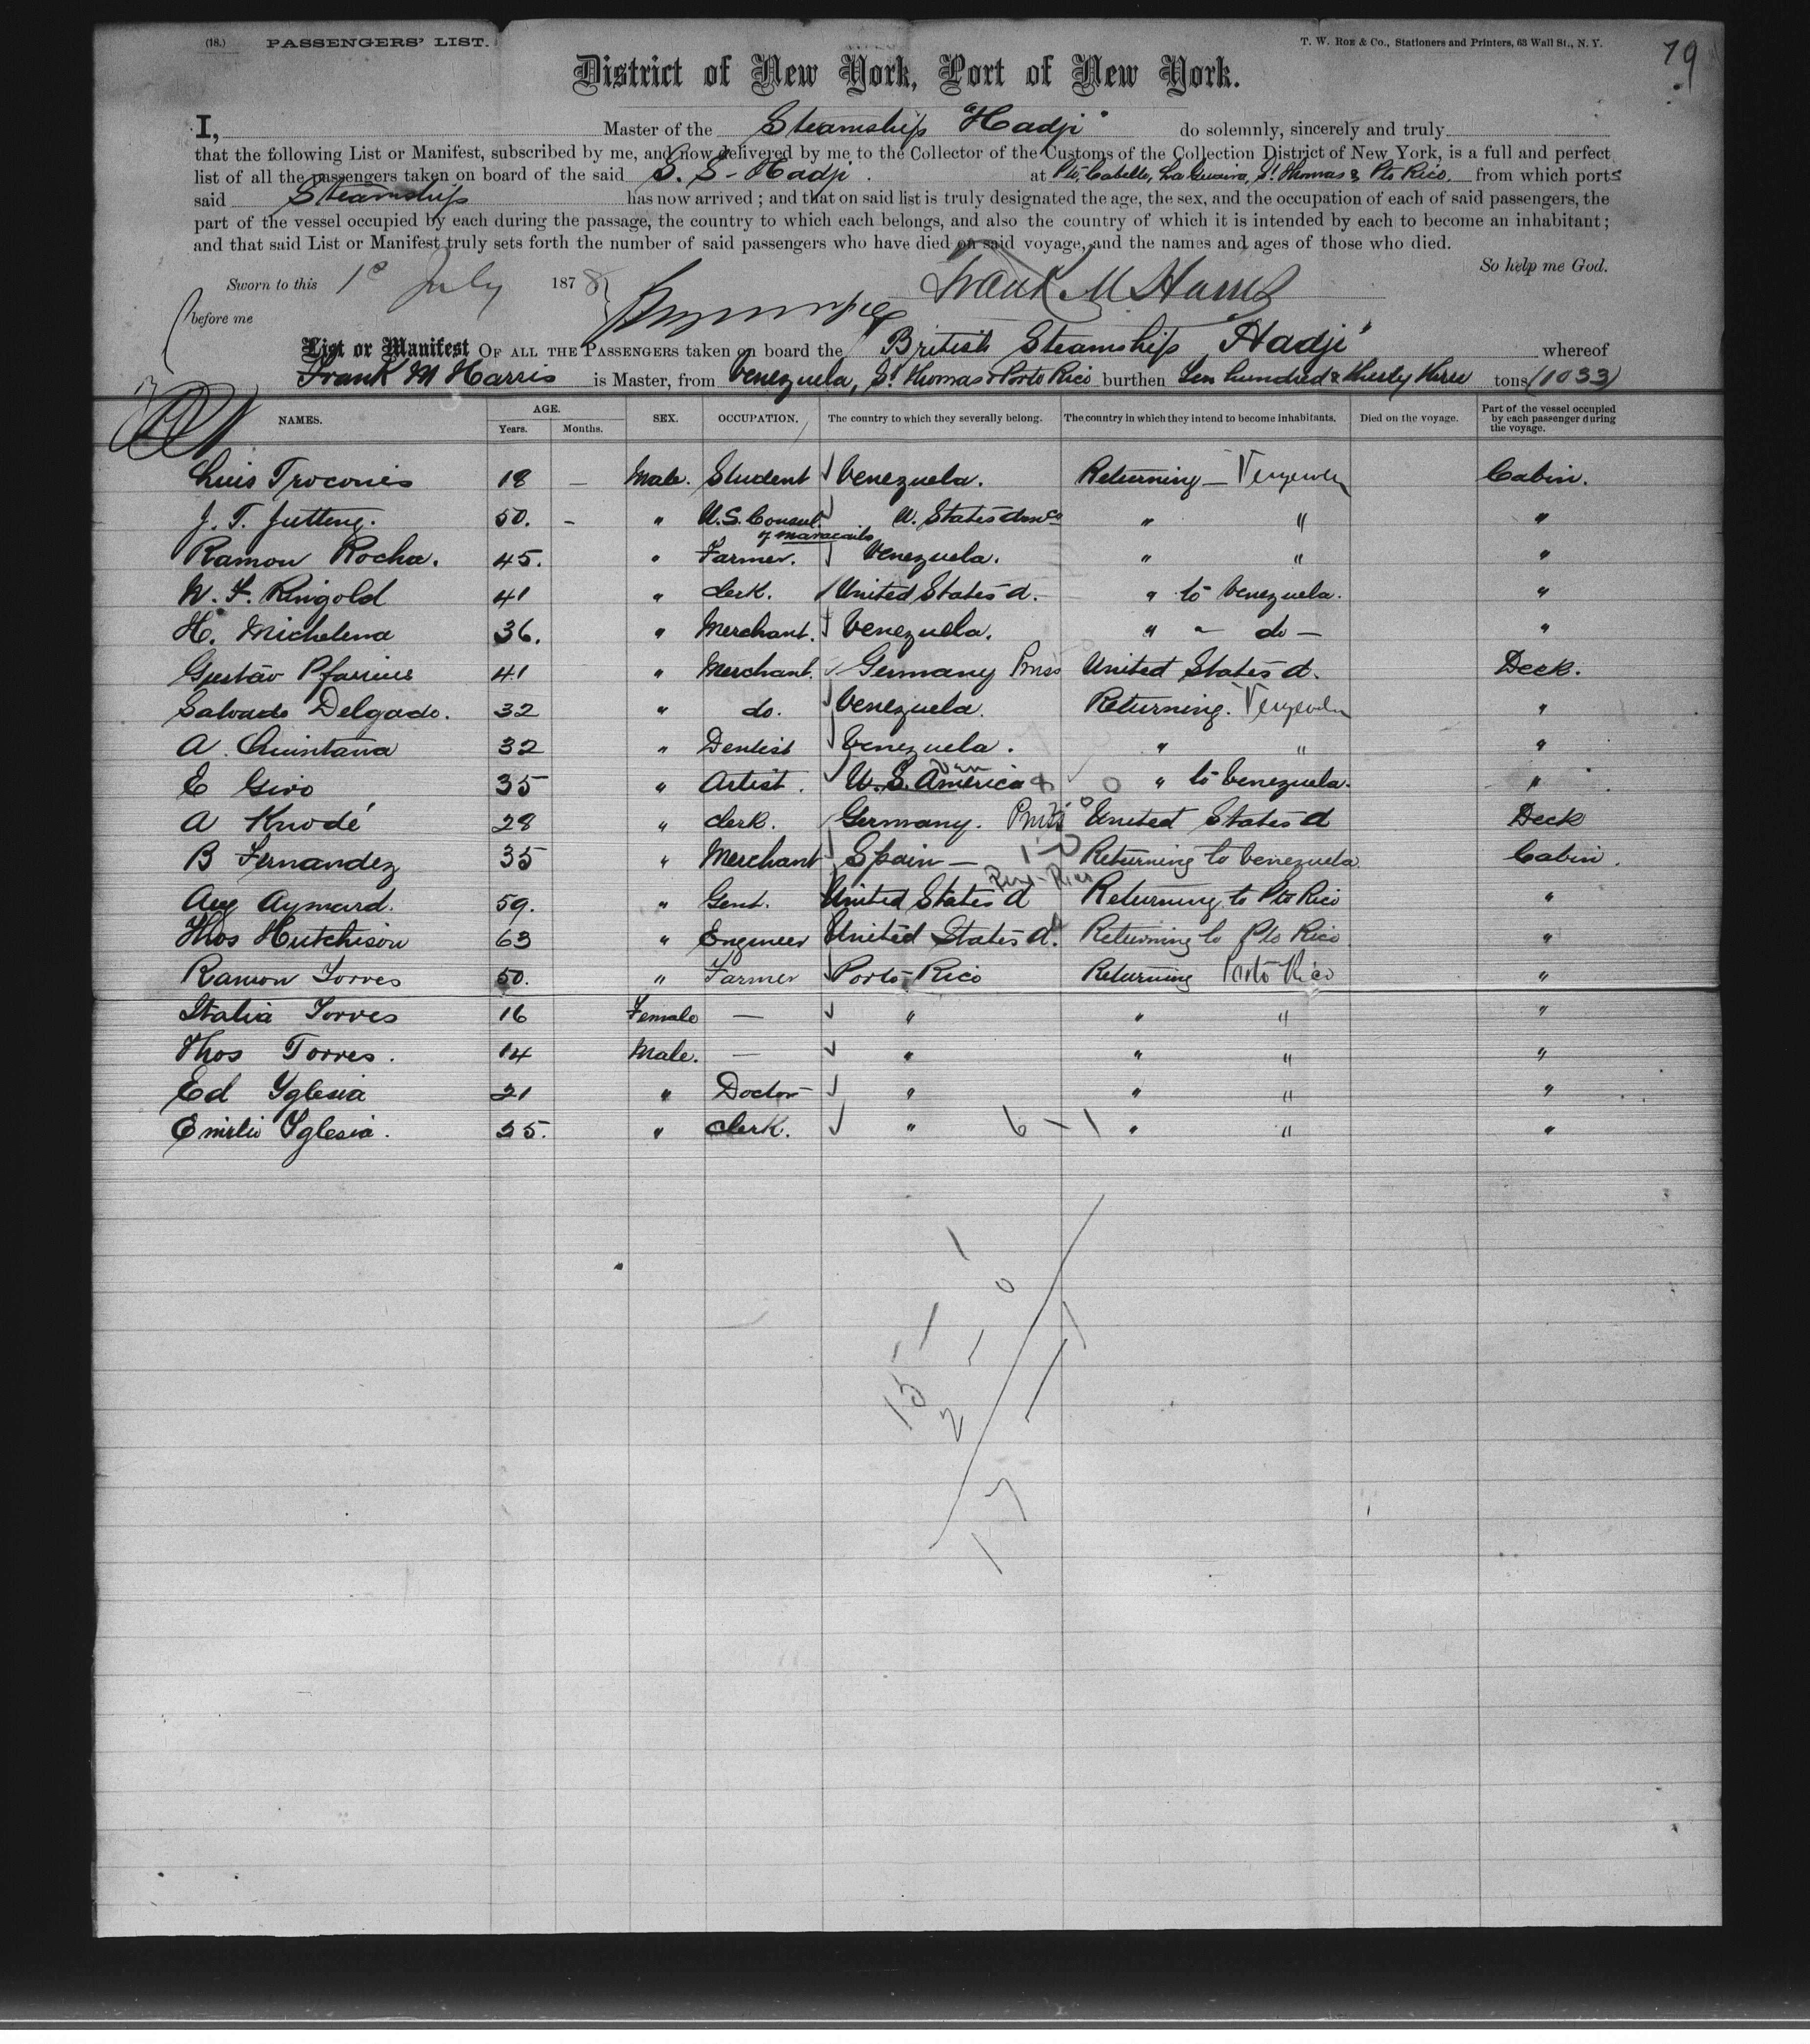 (18.) PASSENGERS' LIST. T. W. Roe & Co., Stationers and Printers, 63 Wall St., N. Y. 79
District of New York, Port of New York.
I, Master of the Steamship "Hadji" do solemnly, sincerely and truly
that the following List or Manifest, subscribed by me, and now delivered by me to the Collector of the Customs of the Collection District of New York, is a full and perfect
list of all the passengers taken on board of the said S. S - Hadji. at Pto Cabello, La Guaira, St Thomas & Pto Rico. from which ports
said Steamship has now arrived; and that on said list is truly designated the age, the sex, and the occupation of each of said passengers, the
part of the vessel occupied by each during the passage, the country to which each belongs, and also the country of which it is intended by each to become an inhabitant;
and that said List or Manifest truly sets forth the number of said passengers who have died on said voyage, and the names and ages of those who died.
So help me God.
Sworn to this 1st July 1878 Frank M Harris
before me
List or Manifest OF ALL THE PASSENGERS taken on board the British Steamship "Hadji" whereof
Frank M Harris is Master, from Venezuela, St Thomas & Porto Rico burthen Ten hundred & thirty three tons (1033)
NAMES. AGE. Years. Months. SEX. OCCUPATION. The country to which they severally belong. The country in which they intend to become inhabitants. Died on the voyage. Part of the vessel occupied by each passenger during the voyage.
Luis Troconis 18 — Male. Student Venezuela. Returning — Venezuela Cabin.
J. T. Jutting. 50. - " U.S. Consul of Maracaibo U. States " " "
Ramon Rocha. 45. " Farmer. Venezuela. " " "
W. F. Ringold 41 " clerk. United States d. " to Venezuela. "
H. Michelena 36. " Merchant. Venezuela. " " do — "
Gustav Pfarrius 41 " Merchant. Germany Pruss United States d. Deck.
Salvado Delgado. 32 " do. Venezuela. Returning. Venezuela "
A. Quintana 32 " Dentist Venezuela. " " "
E Giro 35 " Artist. U. S. America Ven " to Venezuela. "
A Knodé 28 " clerk. Germany. Pruss United States d Deck
B Fernandez 35 " Merchant Spain — Returning to Venezuela Cabin.
Aug Aymard. 59. " Gent. United States d Returning to Pto Rico "
Thos Hutchison 63 " Engineer United States d. Returning to Pto Rico "
Ramon Torres 50. " Farmer Porto-Rico Returning Porto Rico "
Italia Torres 16 Female — " " " "
Thos Torres. 14 Male. — " " " "
Ed Yglesia 21 " Doctor " " " "
Emilio Yglesia. 25. " clerk. " 6 - 1 " " "